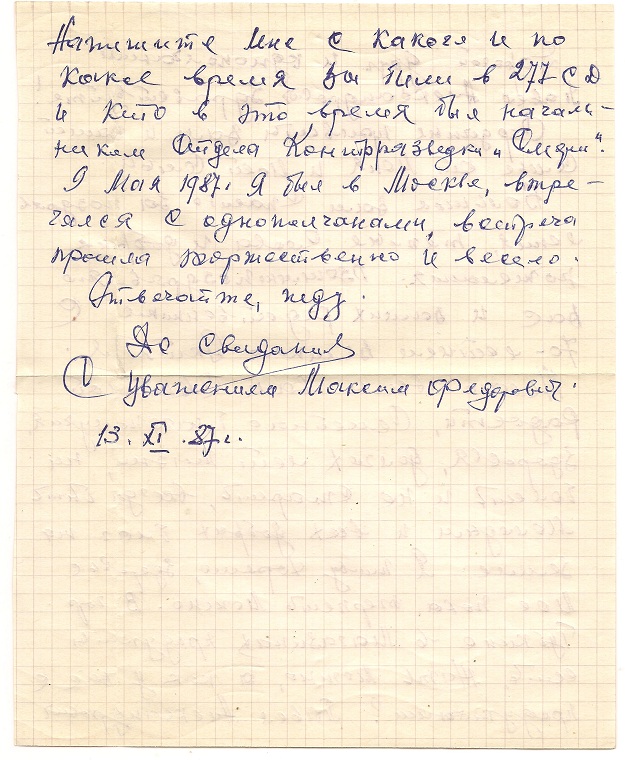 Напишите мне с какого и по
какое время Вы были в 277 СД
и кто в это время был началь-
ником Отдела Контрразведки „Смерш“.
9 Мая 1987г. Я был в Москве, встре-
чался с однополчанами, встреча
прошла торжественно и весело.
Отвечайте, жду.
До свидания
С уважением Максим Федорович.
13. XI .87г.